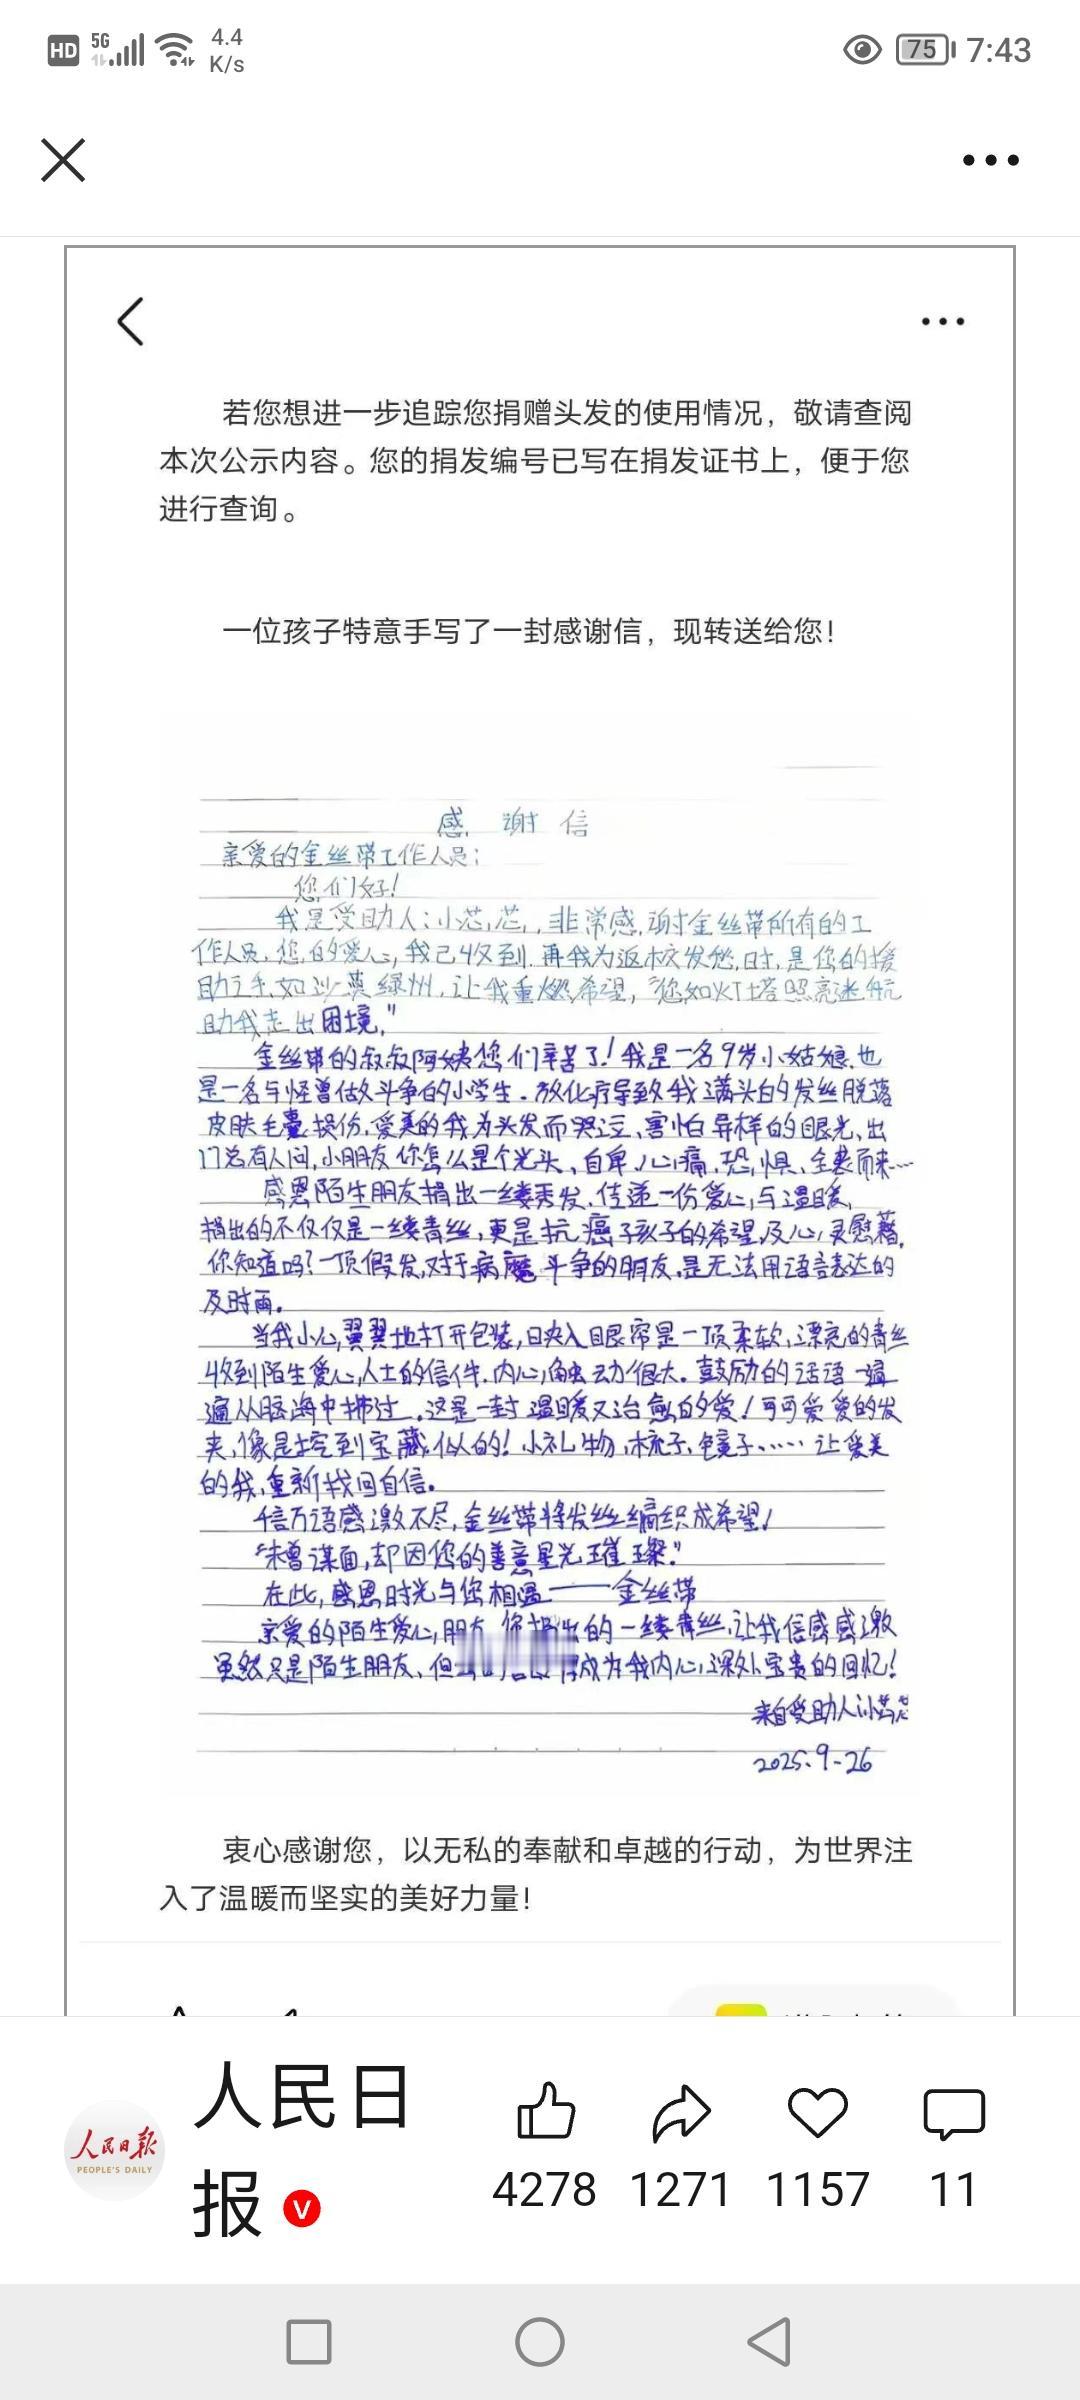 HD 5G 4.4 K/s 75 7:43
若您想进一步追踪您捐赠头发的使用情况，敬请查阅
本次公示内容。您的捐发编号已写在捐发证书上，便于您
进行查询。
一位孩子特意手写了一封感谢信，现转送给您！
感 谢 信
亲爱的金丝带工作人员：
您们好！
我是受助人：小芯芯，非常感谢金丝带所有的工
作人员，您的爱心，我已收到。再我为返校发愁时，是您的援
助之手，如沙漠绿州，让我重燃希望，"您如灯塔照亮迷航
助我走出困境，"
金丝带的叔叔阿姨您们辛苦了！我是一名9岁小姑娘，也
是一名与怪兽做斗争的小学生。放化疗导致我满头的发丝脱落
皮肤毛囊损伤，爱美的我为头发而哭泣、害怕异样的眼光、出
门总有人问，小朋友你怎么是个光头、自卑、心痛、恐惧、全袭而来…
感恩陌生朋友捐出一缕秀发，传递一份爱心与温暖，
捐出的不仅仅是一缕青丝，更是抗癌孩子的希望及心灵慰藉，
你知道吗？一顶假发，对于病魔斗争的朋友，是无法用语言表达的
及时雨。
当我小心翼翼地打开包装，映入眼帘是一顶柔软，漂亮的青丝
收到陌生爱心人士的信件，内心触动很大。鼓励的话语一遍
遍从脑海中拂过，这是一封温暖又治愈的爱！可可爱爱的发
夹，像是挖到宝藏似的！小礼物，梳子、镜子…… 让爱美
的我，重新找回自信。
千言万语感激不尽，金丝带将发丝编织成希望！
"未曾谋面，却因您的善意星光璀璨."
在此，感恩时光与您相遇——金丝带
亲爱的陌生爱心朋友，你捐出的一缕青丝，让我倍感感激
虽然只是陌生朋友，但 成为我内心深处宝贵的回忆！
来自受助人小芯芯
2025.9-26
衷心感谢您，以无私的奉献和卓越的行动，为世界注
入了温暖而坚实的美好力量！
人民日报 PEOPLE'S DAILY
人民日
报 V
4278 1271 1157 11